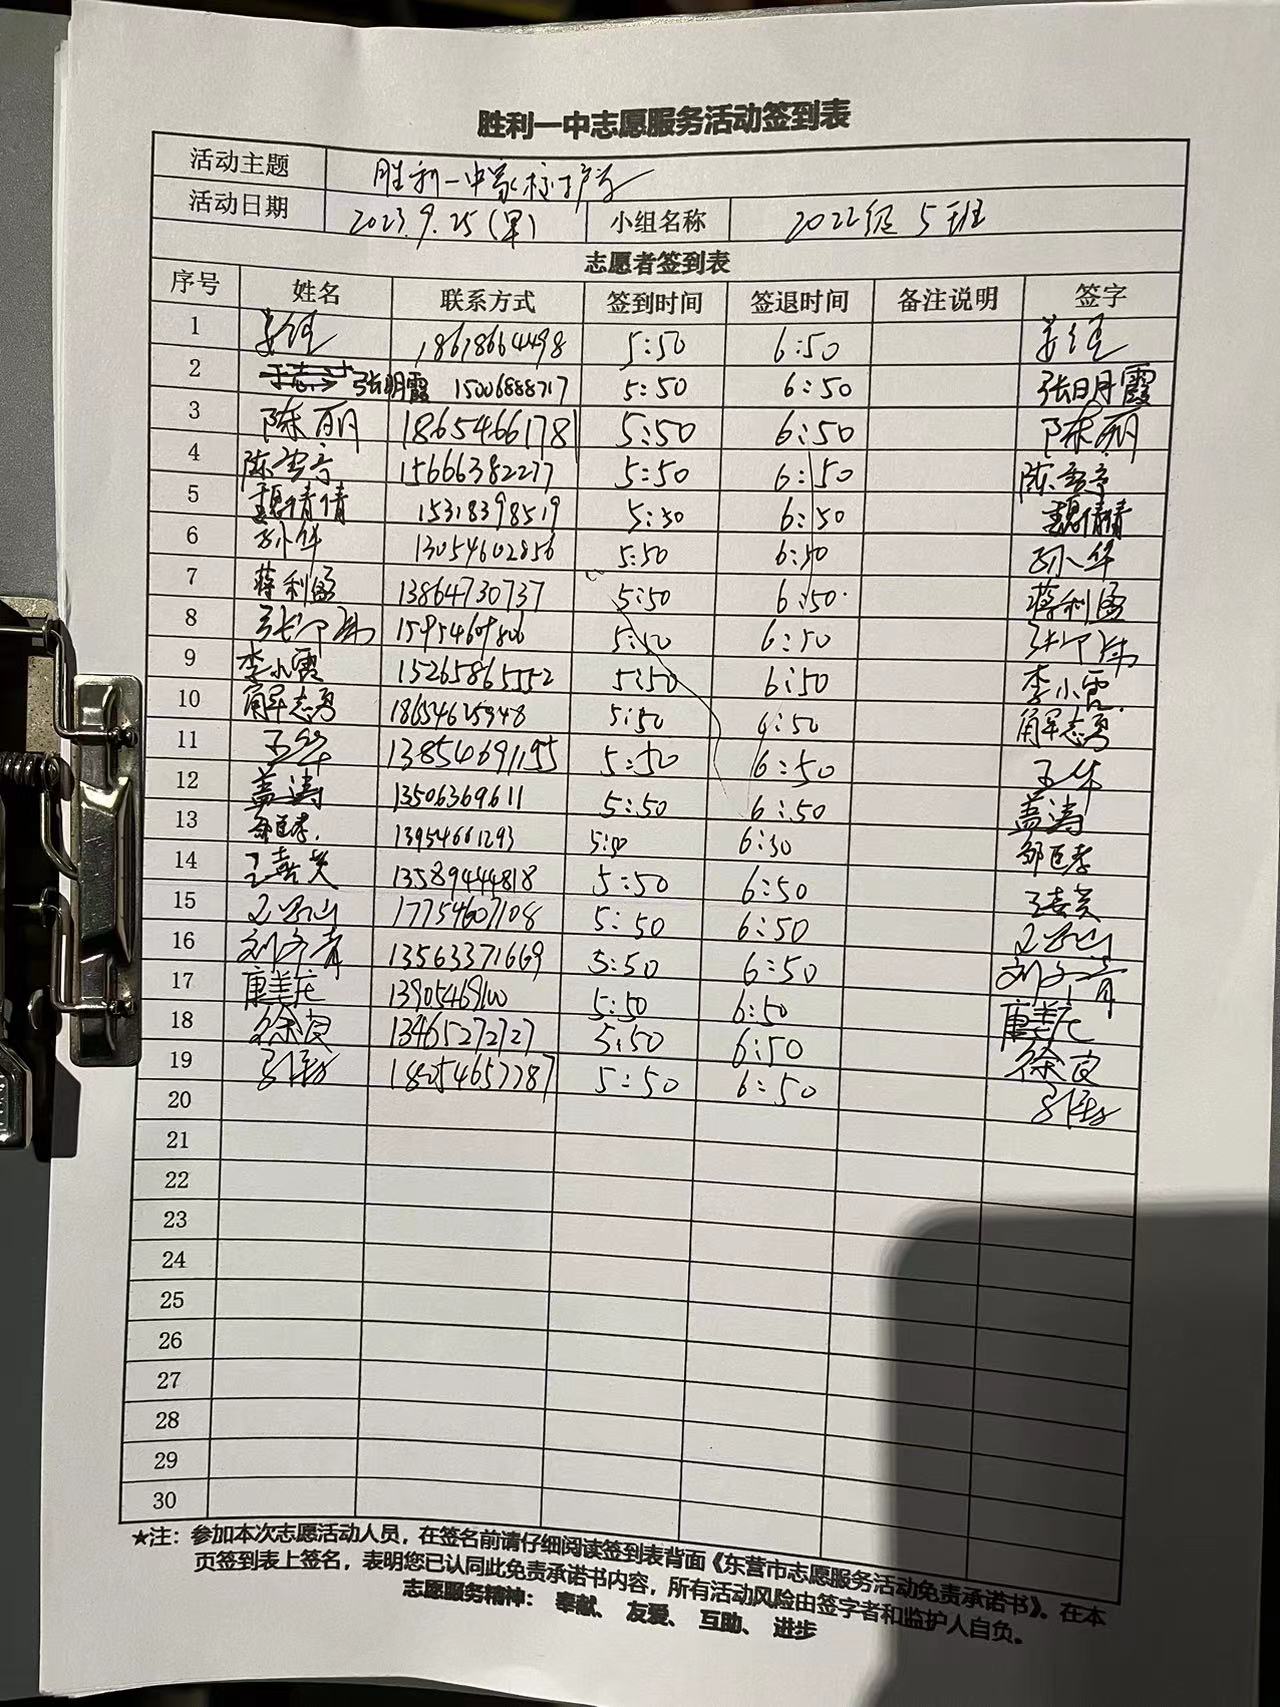 胜利一中志愿服务活动签到表
活动主题 胜利一中家校护学
活动日期 2023.9.25(早) 小组名称 2022级 5班
志愿者签到表
序号 姓名 联系方式 签到时间 签退时间 备注说明 签字
1 18618664498 5:50 6:50
2 张明霞 15006888717 5:50 6:50 张明霞
3 陈丽 18654661781 5:50 6:50 陈丽
4 陈雪亭 15666382277 5:50 6:50 陈雪亭
5 魏倩倩 15318398519 5:50 6:50 魏倩倩
6 孙华 13054602856 5:50 6:50 孙华
7 蒋利盈 13864730737 5:50 6:50 蒋利盈
8 5:50 6:50
9 李小霞 15265865552 5:50 6:50 李小霞
10 解志勇 5:50 6:50 解志勇
11 王华 13854691195 5:50 6:50 王华
12 盖涛 13506369611 5:50 6:50 盖涛
13 邹巨孝 13954661293 5:50 6:50 邹巨孝
14 王喜英 13589444818 5:50 6:50 王喜英
15 17754607108 5:50 6:50
16 13563371669 5:50 6:50
17 唐美花 13905469100 5:50 6:50 唐美花
18 徐良 13465272727 5:50 6:50 徐良
19 18054657787 5:50 6:50
20
21
22
23
24
25
26
27
28
29
30
★注：参加本次志愿活动人员，在签名前请仔细阅读签到表背面《东营市志愿服务活动免责承诺书》。在本
页签到表上签名，表明您已认同此免责承诺书内容，所有活动风险由签字者和监护人自负。
志愿服务精神： 奉献、 友爱、 互助、 进步